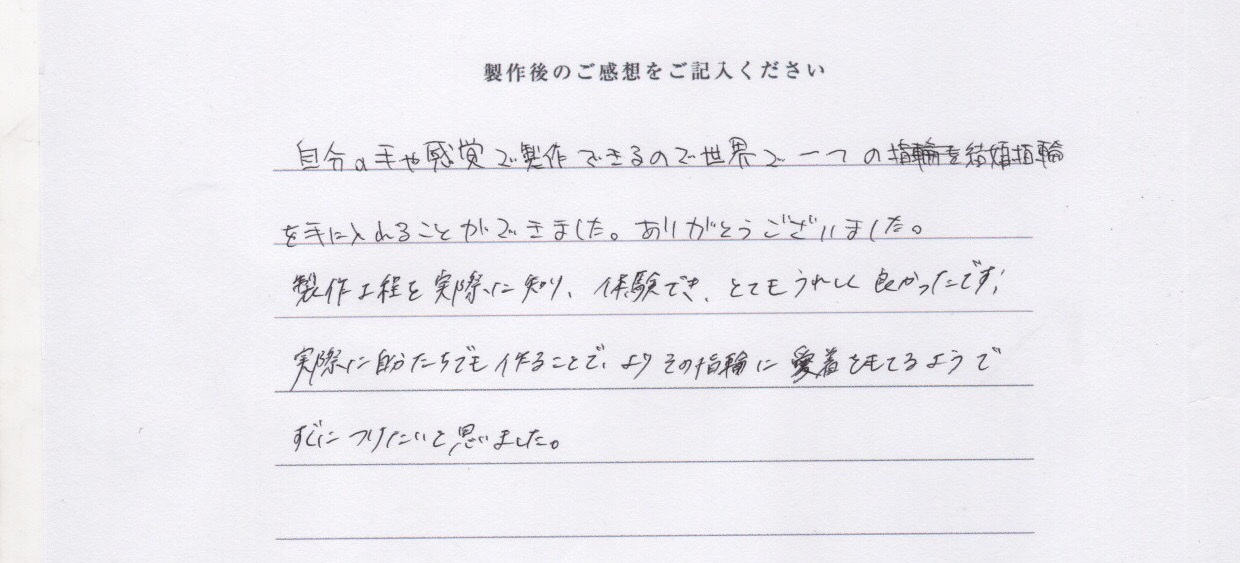 製作後のご感想をご記入ください
自分の手や感覚で製作できるので世界で一つの結婚指輪
を手に入れることができました。ありがとうございました。
製作工程を実際に知り、体験でき、とてもうれしく良かったです!
実際に自分たちでも作ることで、よりその指輪に愛着をもてるようで
すぐにつけたいと思いました。